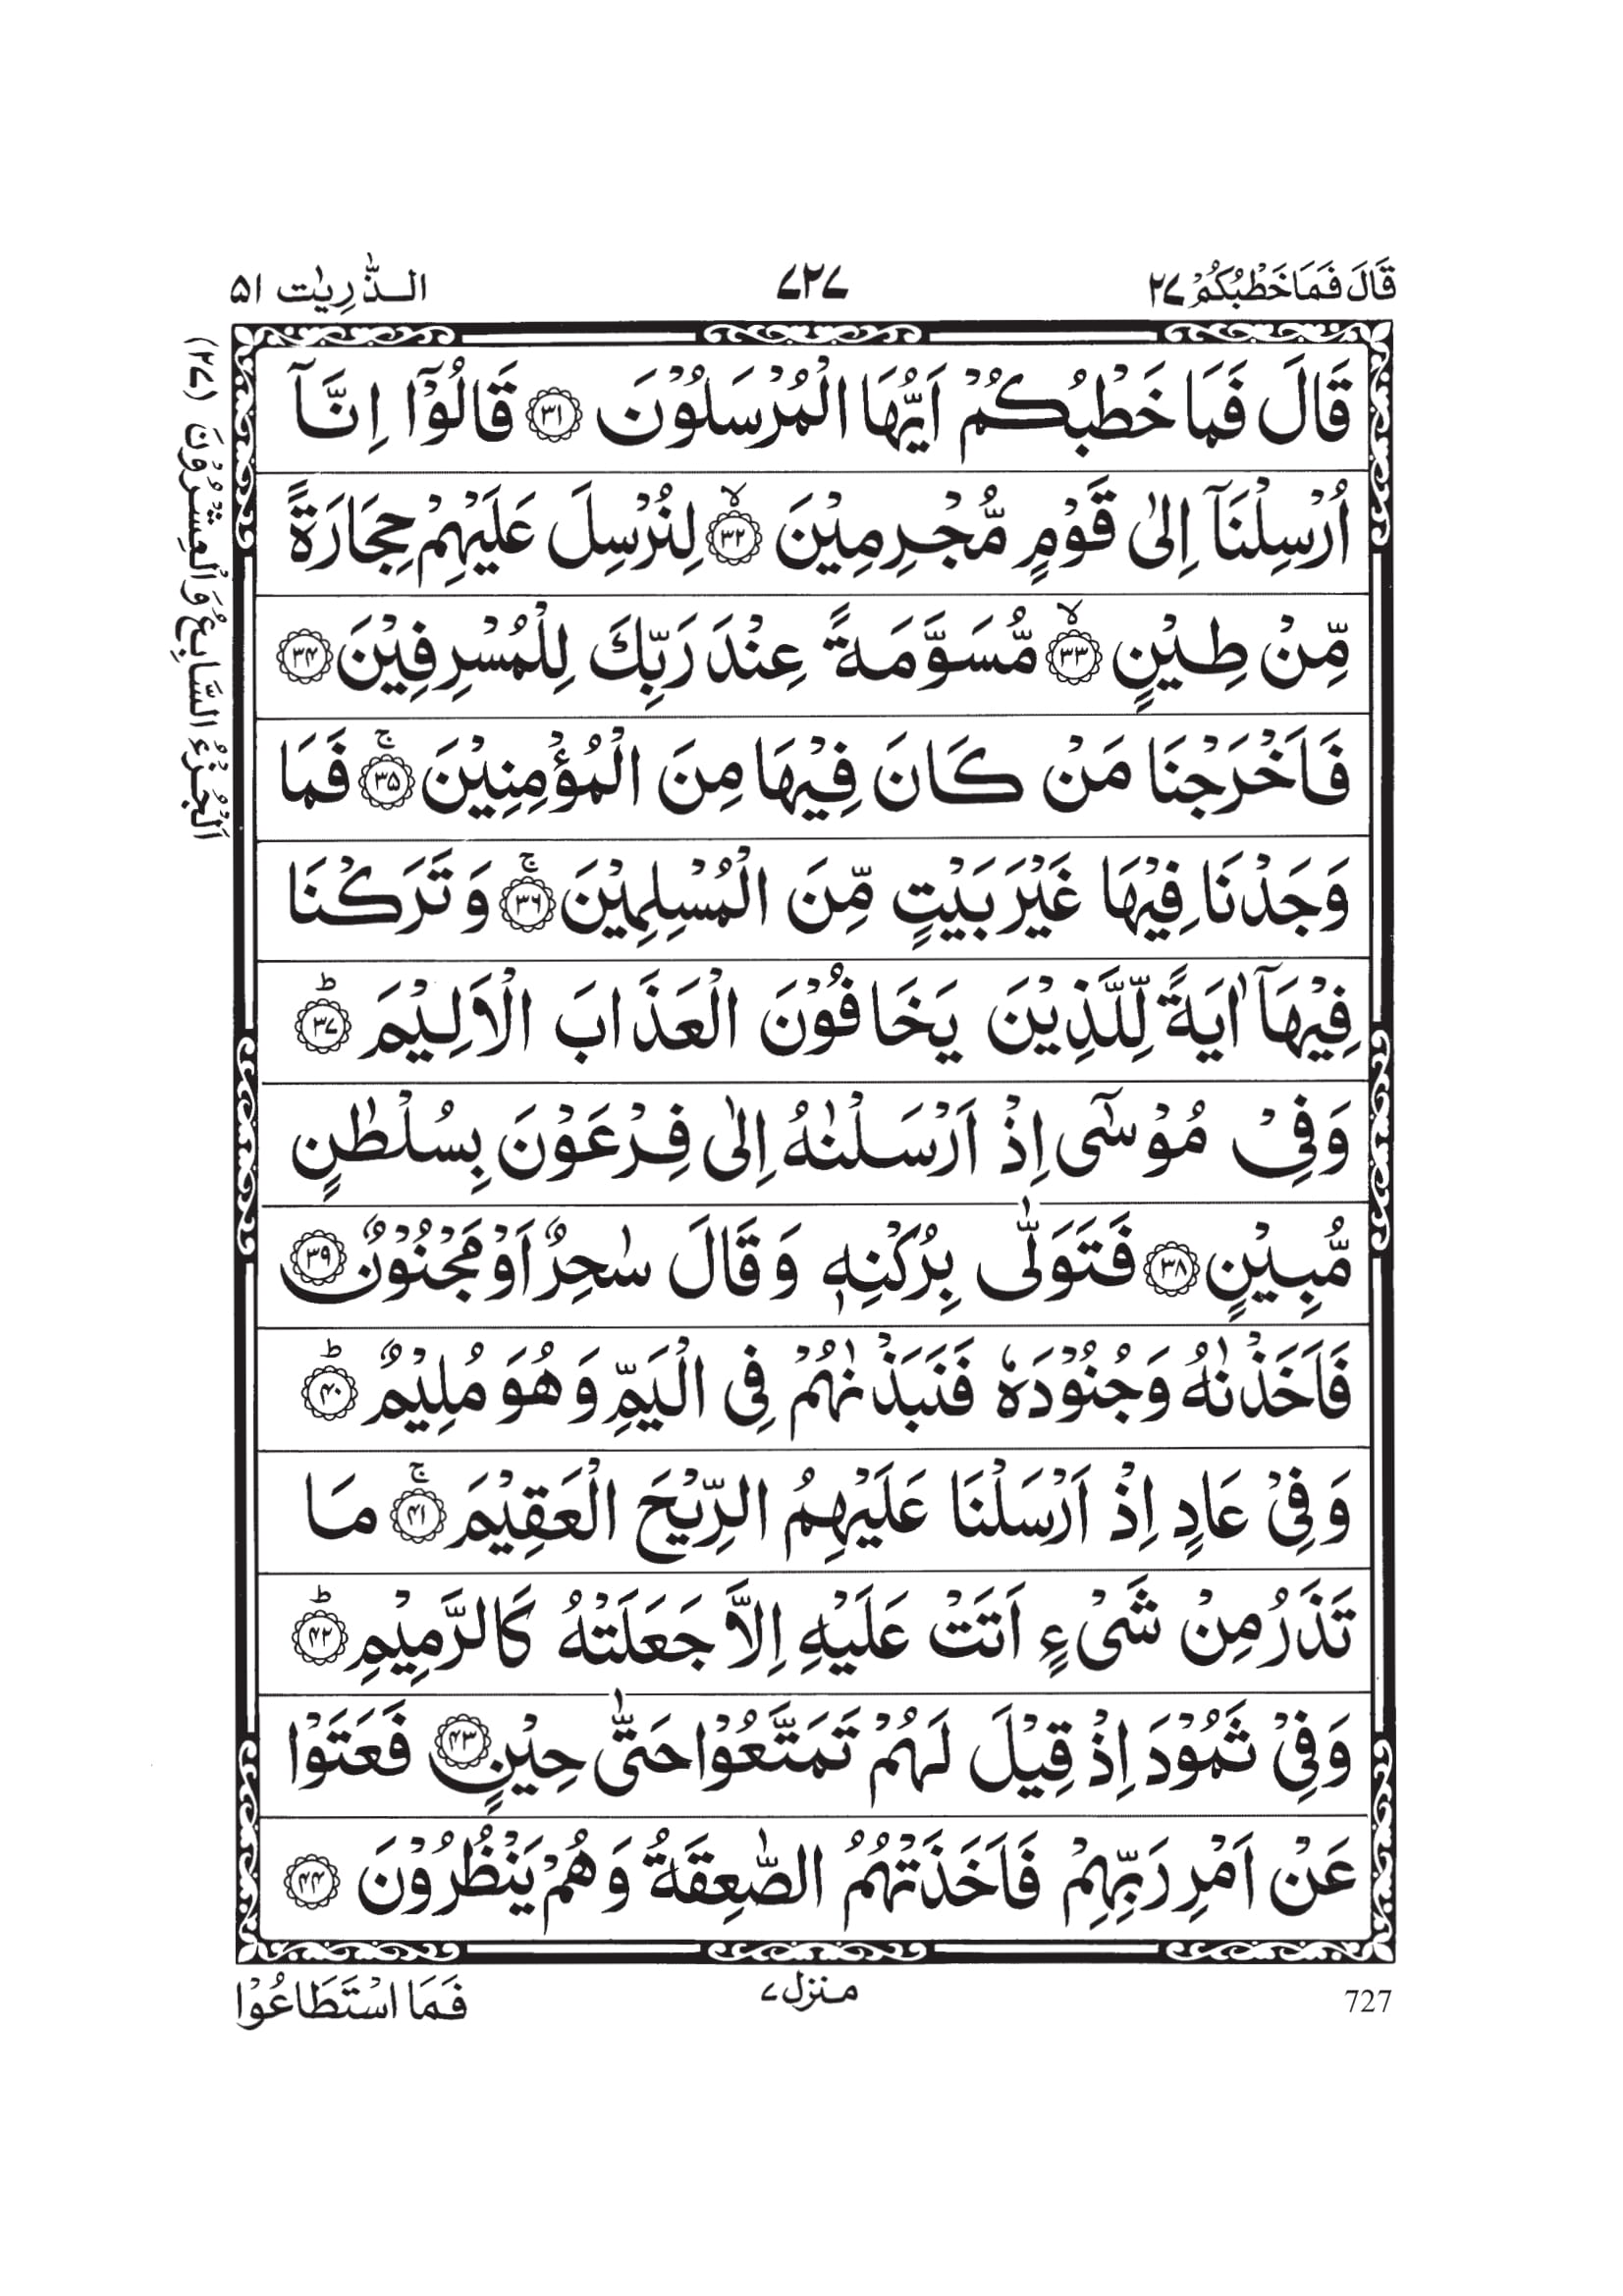 قَالَ فَمَا خَطْبُكُمْ ٢٧
٧٢٧
الـذّٰرِيٰت ٥١
اَلْجُزْءُ السَّابِعُ وَالْعِشْرُوْنَ (٢٧)
قَالَ فَمَا خَطْبُكُمْ اَيُّهَا الْمُرْسَلُوْنَ ۝٣١ قَالُوْٓا اِنَّآ
اُرْسِلْنَآ اِلٰى قَوْمٍ مُّجْرِمِيْنَ ۝٣٢ۙ لِنُرْسِلَ عَلَيْهِمْ حِجَارَةً
مِّنْ طِيْنٍ ۝٣٣ۙ مُّسَوَّمَةً عِنْدَ رَبِّكَ لِلْمُسْرِفِيْنَ ۝٣٤
فَاَخْرَجْنَا مَنْ كَانَ فِيْهَا مِنَ الْمُؤْمِنِيْنَ ۝٣٥ۚ فَمَا
وَجَدْنَا فِيْهَا غَيْرَ بَيْتٍ مِّنَ الْمُسْلِمِيْنَ ۝٣٦ۚ وَتَرَكْنَا
فِيْهَآ اٰيَةً لِّلَّذِيْنَ يَخَافُوْنَ الْعَذَابَ الْاَلِيْمَ ۝٣٧ؕ
وَفِيْ مُوْسٰٓى اِذْ اَرْسَلْنٰهُ اِلٰى فِرْعَوْنَ بِسُلْطٰنٍ
مُّبِيْنٍ ۝٣٨ فَتَوَلّٰى بِرُكْنِهٖ وَقَالَ سٰحِرٌ اَوْ مَجْنُوْنٌ ۝٣٩
فَاَخَذْنٰهُ وَجُنُوْدَهٗ فَنَبَذْنٰهُمْ فِى الْيَمِّ وَهُوَ مُلِيْمٌ ۝٤٠ؕ
وَفِيْ عَادٍ اِذْ اَرْسَلْنَا عَلَيْهِمُ الرِّيْحَ الْعَقِيْمَ ۝٤١ۚ مَا
تَذَرُ مِنْ شَىْءٍ اَتَتْ عَلَيْهِ اِلَّا جَعَلَتْهُ كَالرَّمِيْمِ ۝٤٢ؕ
وَفِيْ ثَمُوْدَ اِذْ قِيْلَ لَهُمْ تَمَتَّعُوْا حَتّٰى حِيْنٍ ۝٤٣ فَعَتَوْا
عَنْ اَمْرِ رَبِّهِمْ فَاَخَذَتْهُمُ الصّٰعِقَةُ وَهُمْ يَنْظُرُوْنَ ۝٤٤
727
منزل ٧
فَمَا اسْتَطَاعُوْا